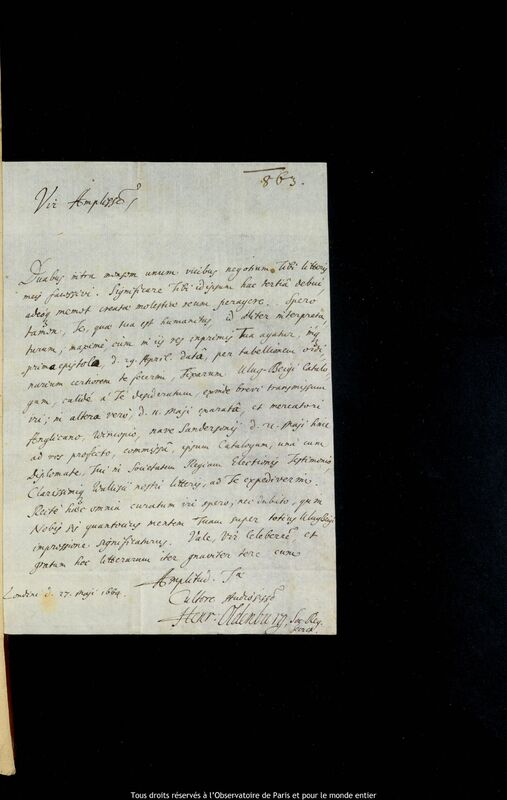 863.
Vir Amplissē,
Duabus intra mensem unum vicibus negotium Tibi litteris
meis facessivi. Significare Tibi id ipsum hac tertiâ debui
adeoq memet creatae molestiae reum peragere. Spero
tamen, Te, qua tua est humanitas, id aliter interpreta-
turum, maximè cum in iis res imprimis Tua agatur,
prima epistola, d. 29. April. data, per tabellionem ordi-
narium certiorem te fecerim, Fixarum Ulug-Beigi Catalo-
gum, calidè à Te desideratum, quàm brevi transmissum
iri; in altera verò, d. 11. Maji exarata, et mercatori
Anglicano, nave Sandersonij d. 12. Maji hinc
ad vos profecto, commissâ, ipsum Catalogum, una cum
Diplomate, Tui in Societatem Regiam Electionis Testimonio
Clarissimiq Wallisii nostri litteris, ad Te expediverim.
Rectè haec omnia curatum iri spero; nec dubito, quin
Nobis mentem Tuam super totius Ulug Beigi
impressione significaturus. Vale, Vir Celeberrē et
hoc litterarum iter gnaviter tere cum
Amplitud. Tae
Cultore studiosissō
Henr. Oldenburg, Soc. Reg.
Secr.
Londini d. 27. Maji 1664.
Tous droits réservés à l'Observatoire de Paris et pour le monde entier